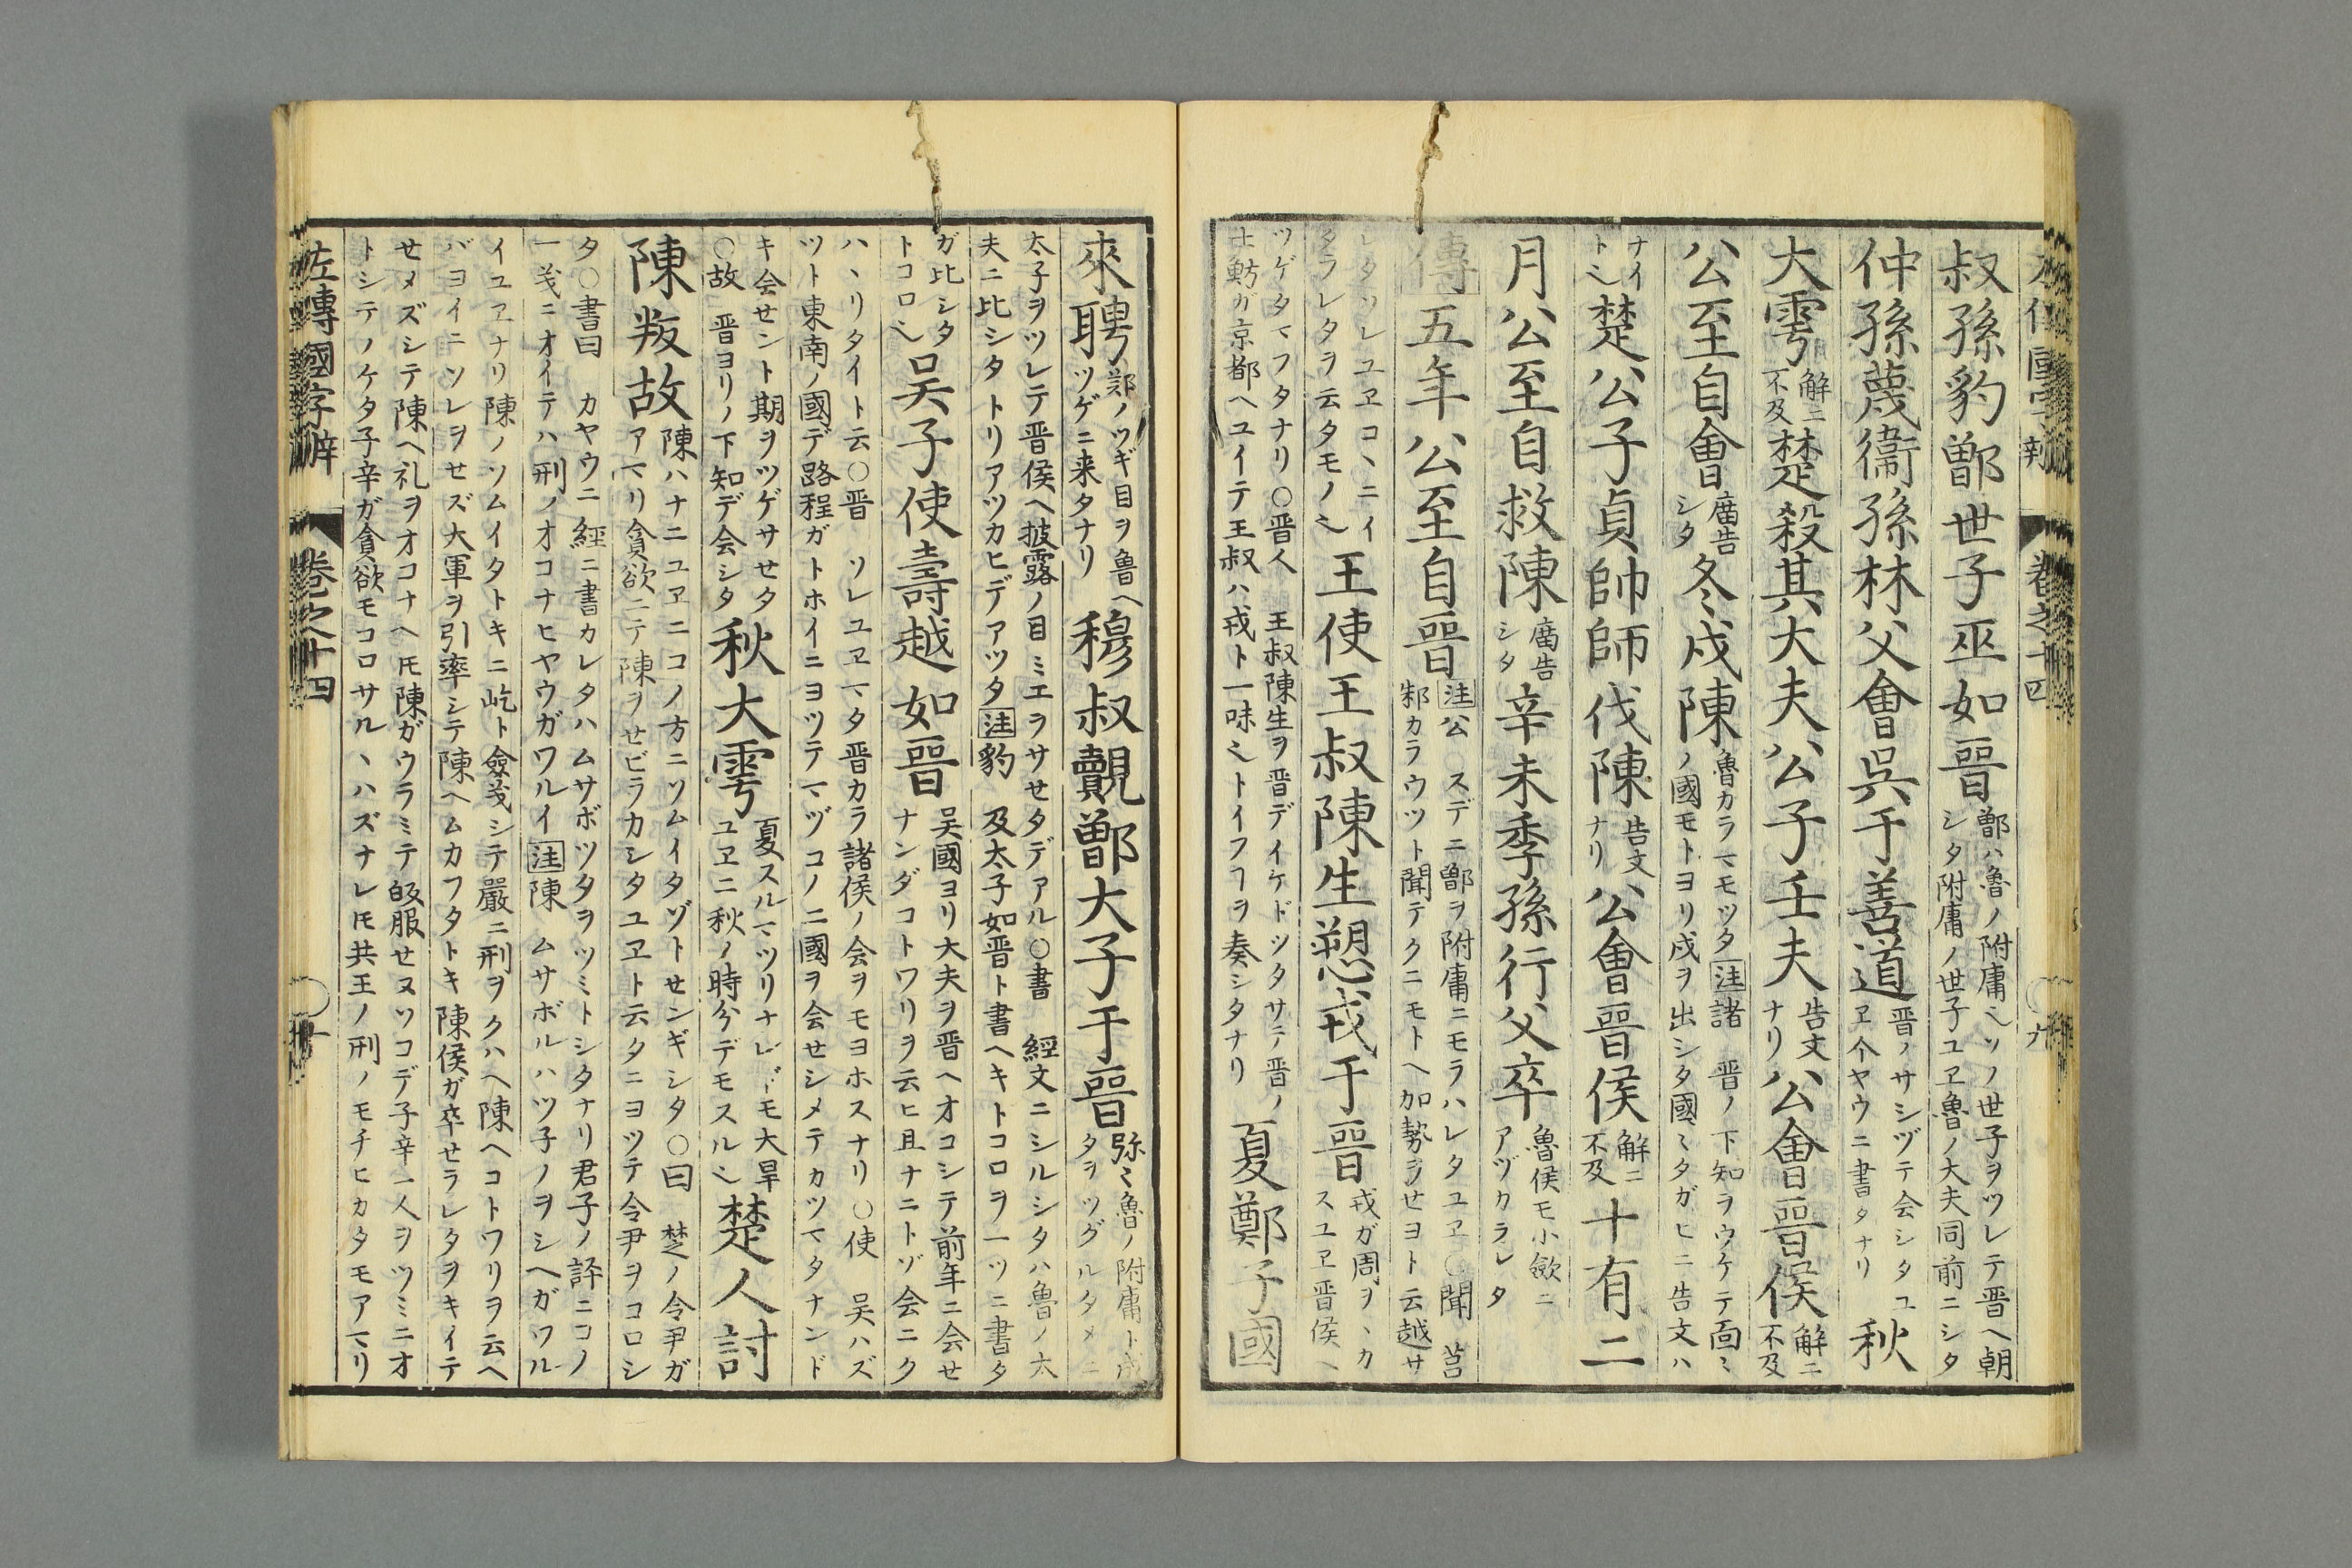 叔孫豹鄫世子巫如晉 鄫ハ魯ノ附庸ソノ世子ヲツレテ晋ヘ朝シタ附庸ノ世子ユヱ魯ノ大夫同前ニシタ
仲孫蔑衞孫林父會吳于善道 晋ノサシヅテ会シタユヱ今ヤウニ書タナリ 秋
大雩 解ニ不及 楚殺其大夫公子壬夫 告文ナリ 公會晉侯 解ニ不及
公至自會 廣告シタ 冬戍陳 魯カラマモツタ 注 諸 晋ノ下知ヲウケテ面〻ノ國モトヨリ戍ヲ出シタ國〻タガヒニ告文ハ
ナイト 楚公子貞帥師伐陳 告文ナリ 公會晉侯 解ニ不及 十有二
月公至自救陳 廣告シタ 辛未季孫行父卒 魯侯モ小歛ニアヅカラレタ
傳 五年公至自晉 注 公 スデニ鄫ヲ附庸ニモラハレタユヱ○聞 莒邾カラウツト聞テクニモトヘ加勢ヲせヨト云越サ
レタソレユヱコヽニイタラレタヲ云タモノ 王使王叔陳生愬戎于晉 戎ガ周ヲヽカスユヱ晋侯ヘ
ツゲタマフタナリ○晋人 王叔陳生ヲ晋デイケドツタサテ晋ノ士魴ガ京都ヘユイテ王叔ハ戎ト一味トイフヿヲ奏シタナリ 夏鄭子國
來聘 鄭ノツギ目ヲ魯ヘツゲニ来タナリ 穆叔覿鄫大子于晉 弥〻魯ノ附庸ト成タヲツグルタメニ
太子ヲツレテ晋侯ヘ披露ノ目ミエヲサせタデアル○書 經文ニシルシタハ魯ノ大夫ニ比シタトリアツカヒデアツタ 注 豹 及太子如晋ト書ヘキトコロヲ一ツニ書タ
ガ比シタトコロ 吳子使壽越如晉 吴國ヨリ大夫ヲ晋ヘオコシテ前年ニ会せナンダコトワリヲ云ヒ且ナニトゾ会ニク
ハヽリタイト云○晋 ソレユヱマタ晋カラ諸侯ノ会ヲモヨホスナリ○使 吴ハズツト東南ノ國デ路程ガトホイニヨツテマヅコノ二國ヲ会せシメテカツマタナンド
キ会せント期ヲツゲサせタ○故 晋ヨリノ下知デ会シタ 秋大雩 夏スルマツリナレドモ大旱ユヱニ秋ノ時分デモスル 楚人討
陳叛故 陳ハナニユヱニコノ方ニソムイタゾトせンギシタ○曰 楚ノ令尹ガアマリ貪欲ニテ陳ヲせビラカシタユヱト云タニヨツテ令尹ヲコロシ
タ○書曰 カヤウニ經ニ書カレタハムサボツタヲツミトシタナリ君子ノ評ニコノ一義ニオイテハ刑ノオコナヒヤウガワルイ 注 陳 ムサボルハツ子ノヲシヘガワル
イユヱナリ陳ノソムイタトキニ屹ト僉義シテ嚴ニ刑ヲクハヘ陳ヘコトワリヲ云ヘバヨイニソレヲせズ大軍ヲ引率シテ陳ヘムカフタトキ陳侯ガ卒せラレタヲキイテ
せメズシテ陳ヘ礼ヲオコナヘ𪜈陳ガウラミテ皈服せヌソコデ子辛一人ヲツミニオトシテノケタ子辛ガ貪欲モコロサルヽハズナレ𪜈共王ノ刑ノモチヒカタモアマリ
左傳國字辯 卷之十四